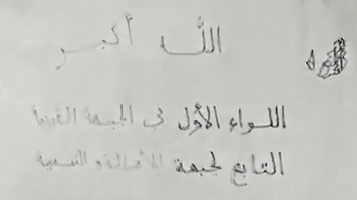 الله أكبر
اللواء الأول في الجبهة
التابع لجبهة الأصالة و التنمية